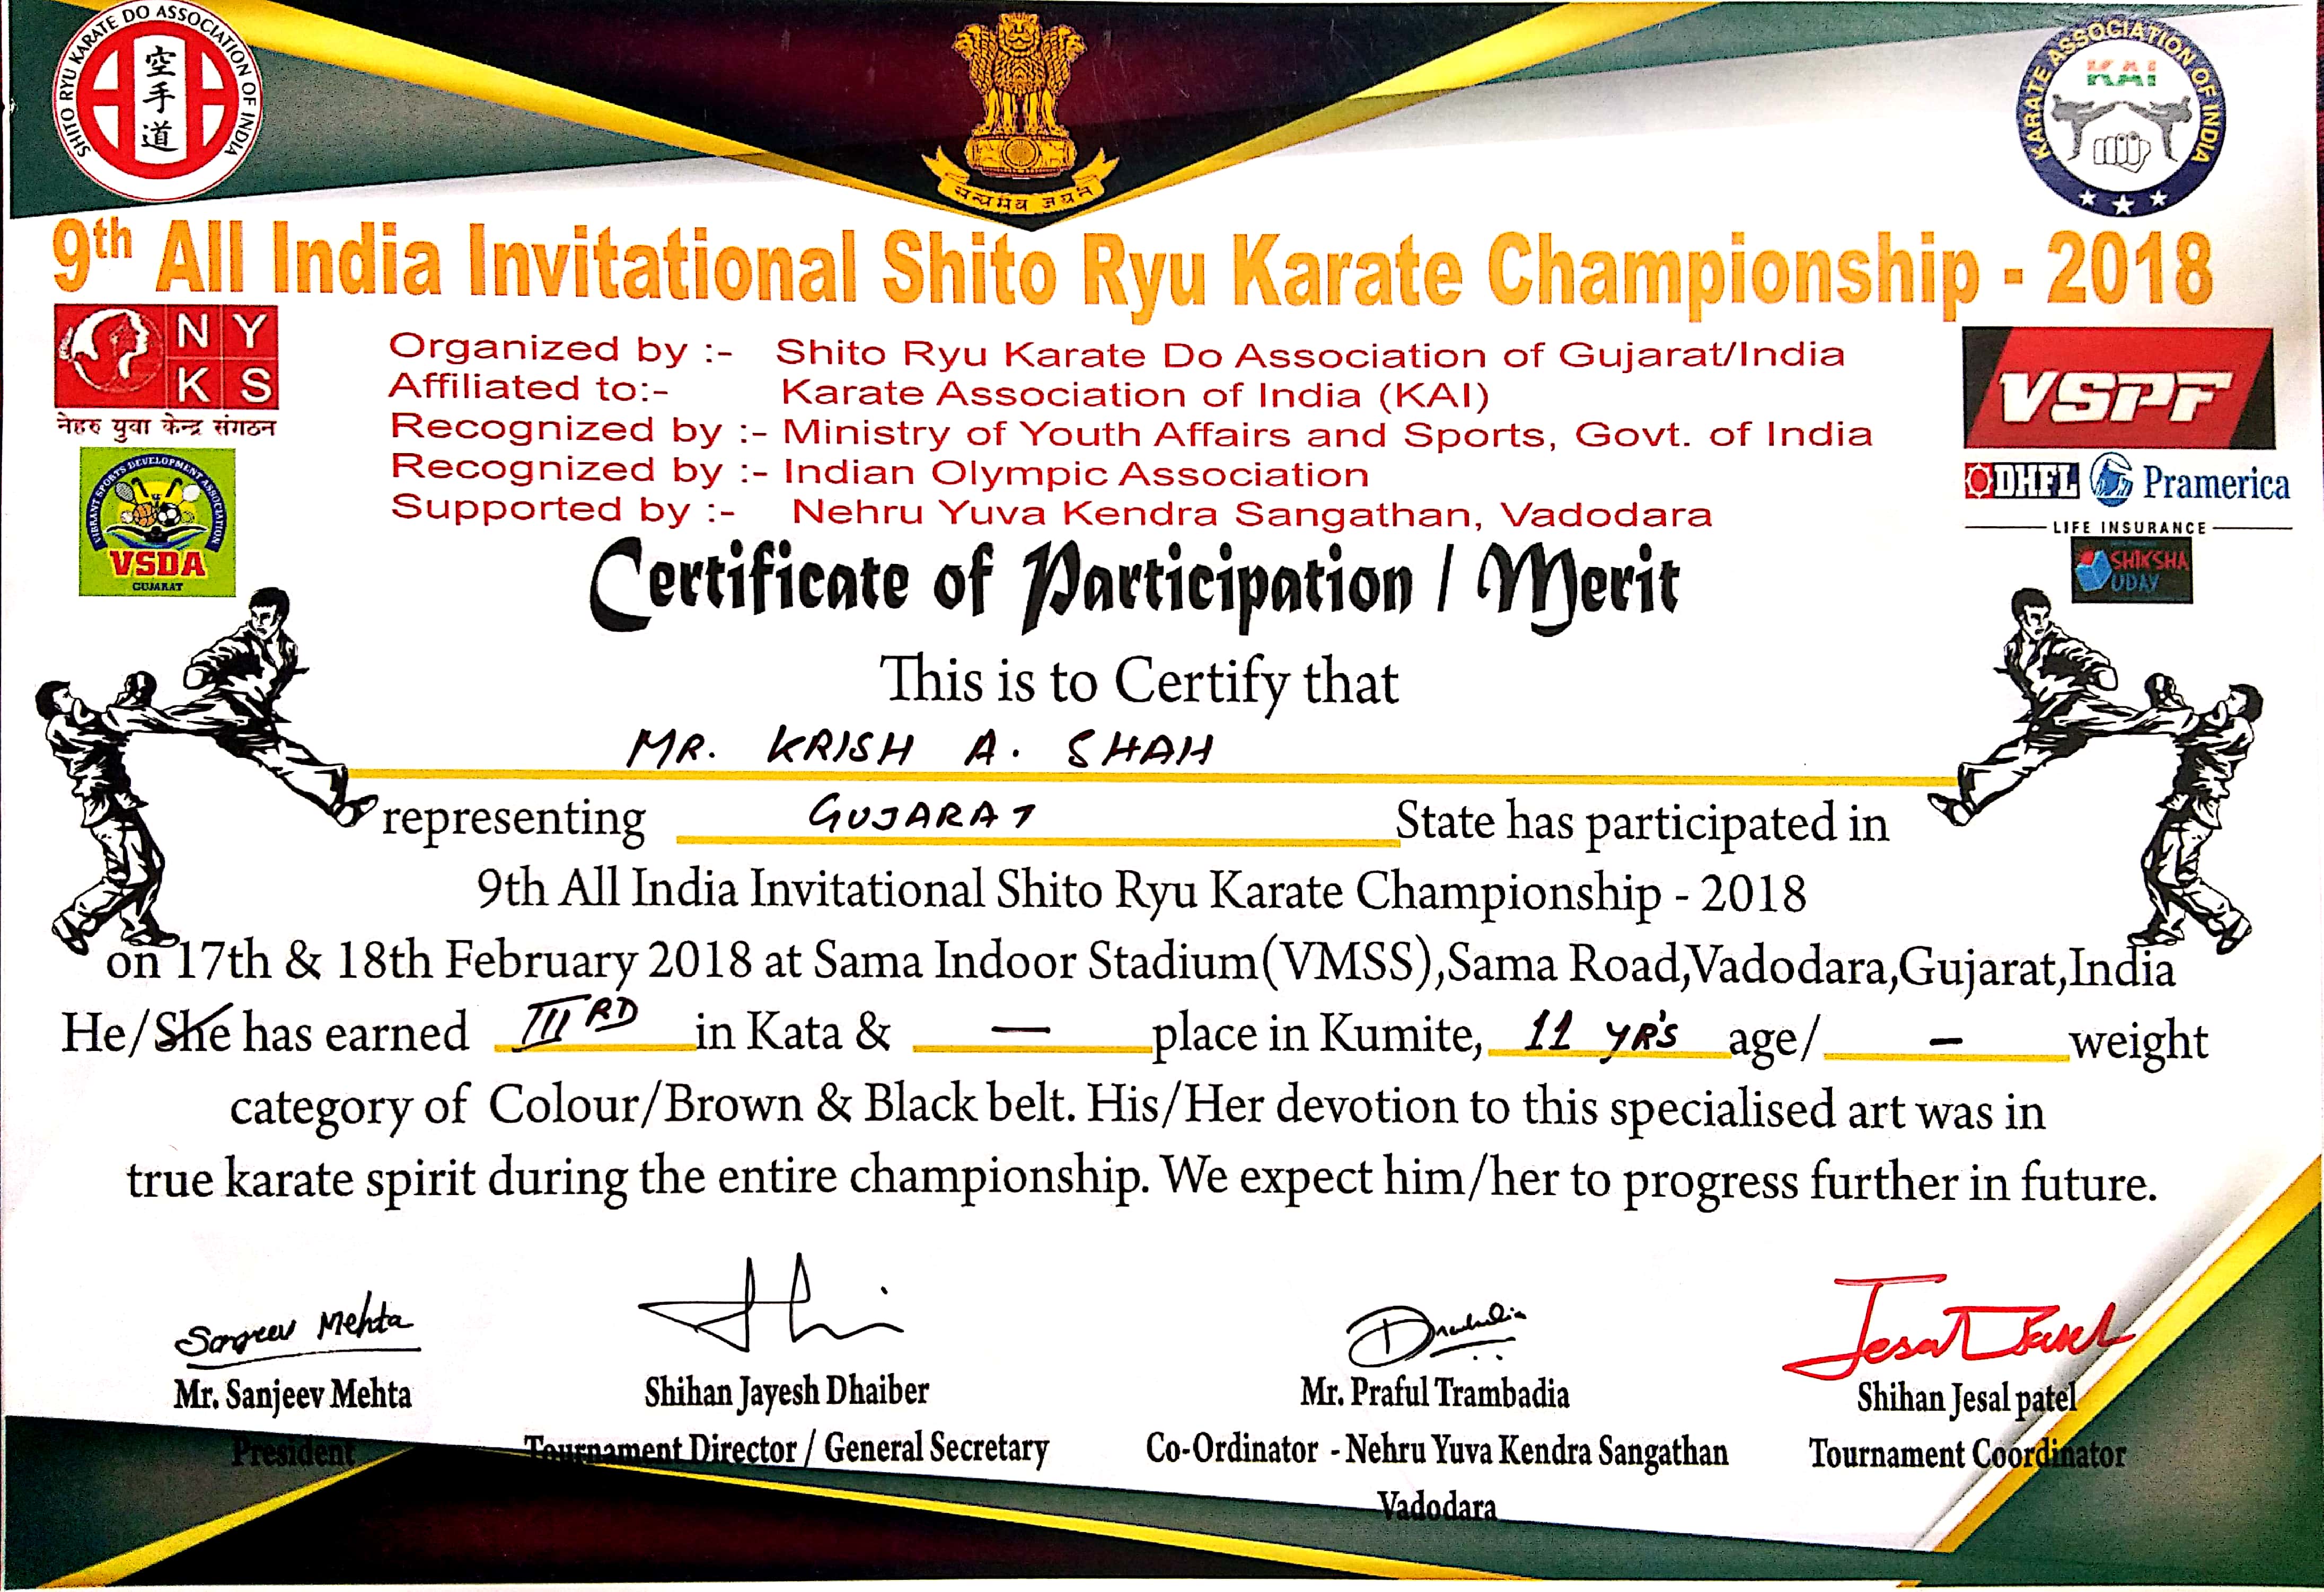 SHITO RYU KARATE DO ASSOCIATION OF INDIA
空手道
सत्यमेव जयते
KARATE ASSOCIATION OF INDIA
KAI
9th All India Invitational Shito Ryu Karate Championship - 2018
N Y
K S
नेहरु युवा केन्द्र संगठन
Organized by :- Shito Ryu Karate Do Association of Gujarat/India
Affiliated to:- Karate Association of India (KAI)
Recognized by :- Ministry of Youth Affairs and Sports, Govt. of India
Recognized by :- Indian Olympic Association
Supported by :- Nehru Yuva Kendra Sangathan, Vadodara
VSPF
DHFL Pramerica
LIFE INSURANCE
SHIKSHA
UDAY
VIBRANT SPORTS DEVELOPMENT ASSOCIATION
VSDA
GUJARAT
Certificate of Participation / Merit
This is to Certify that
MR. KRISH A. SHAH
representing GUJARAT State has participated in
9th All India Invitational Shito Ryu Karate Championship - 2018
on 17th & 18th February 2018 at Sama Indoor Stadium(VMSS),Sama Road,Vadodara,Gujarat,India
He/She has earned III RD in Kata & — place in Kumite, 11 YR'S age/ – weight
category of Colour/Brown & Black belt. His/Her devotion to this specialised art was in
true karate spirit during the entire championship. We expect him/her to progress further in future.
Sanjeev Mehta
Jesal Patel
Mr. Sanjeev Mehta
President
Shihan Jayesh Dhaiber
Tournament Director / General Secretary
Mr. Praful Trambadia
Co-Ordinator - Nehru Yuva Kendra Sangathan
Vadodara
Shihan Jesal patel
Tournament Coordinator